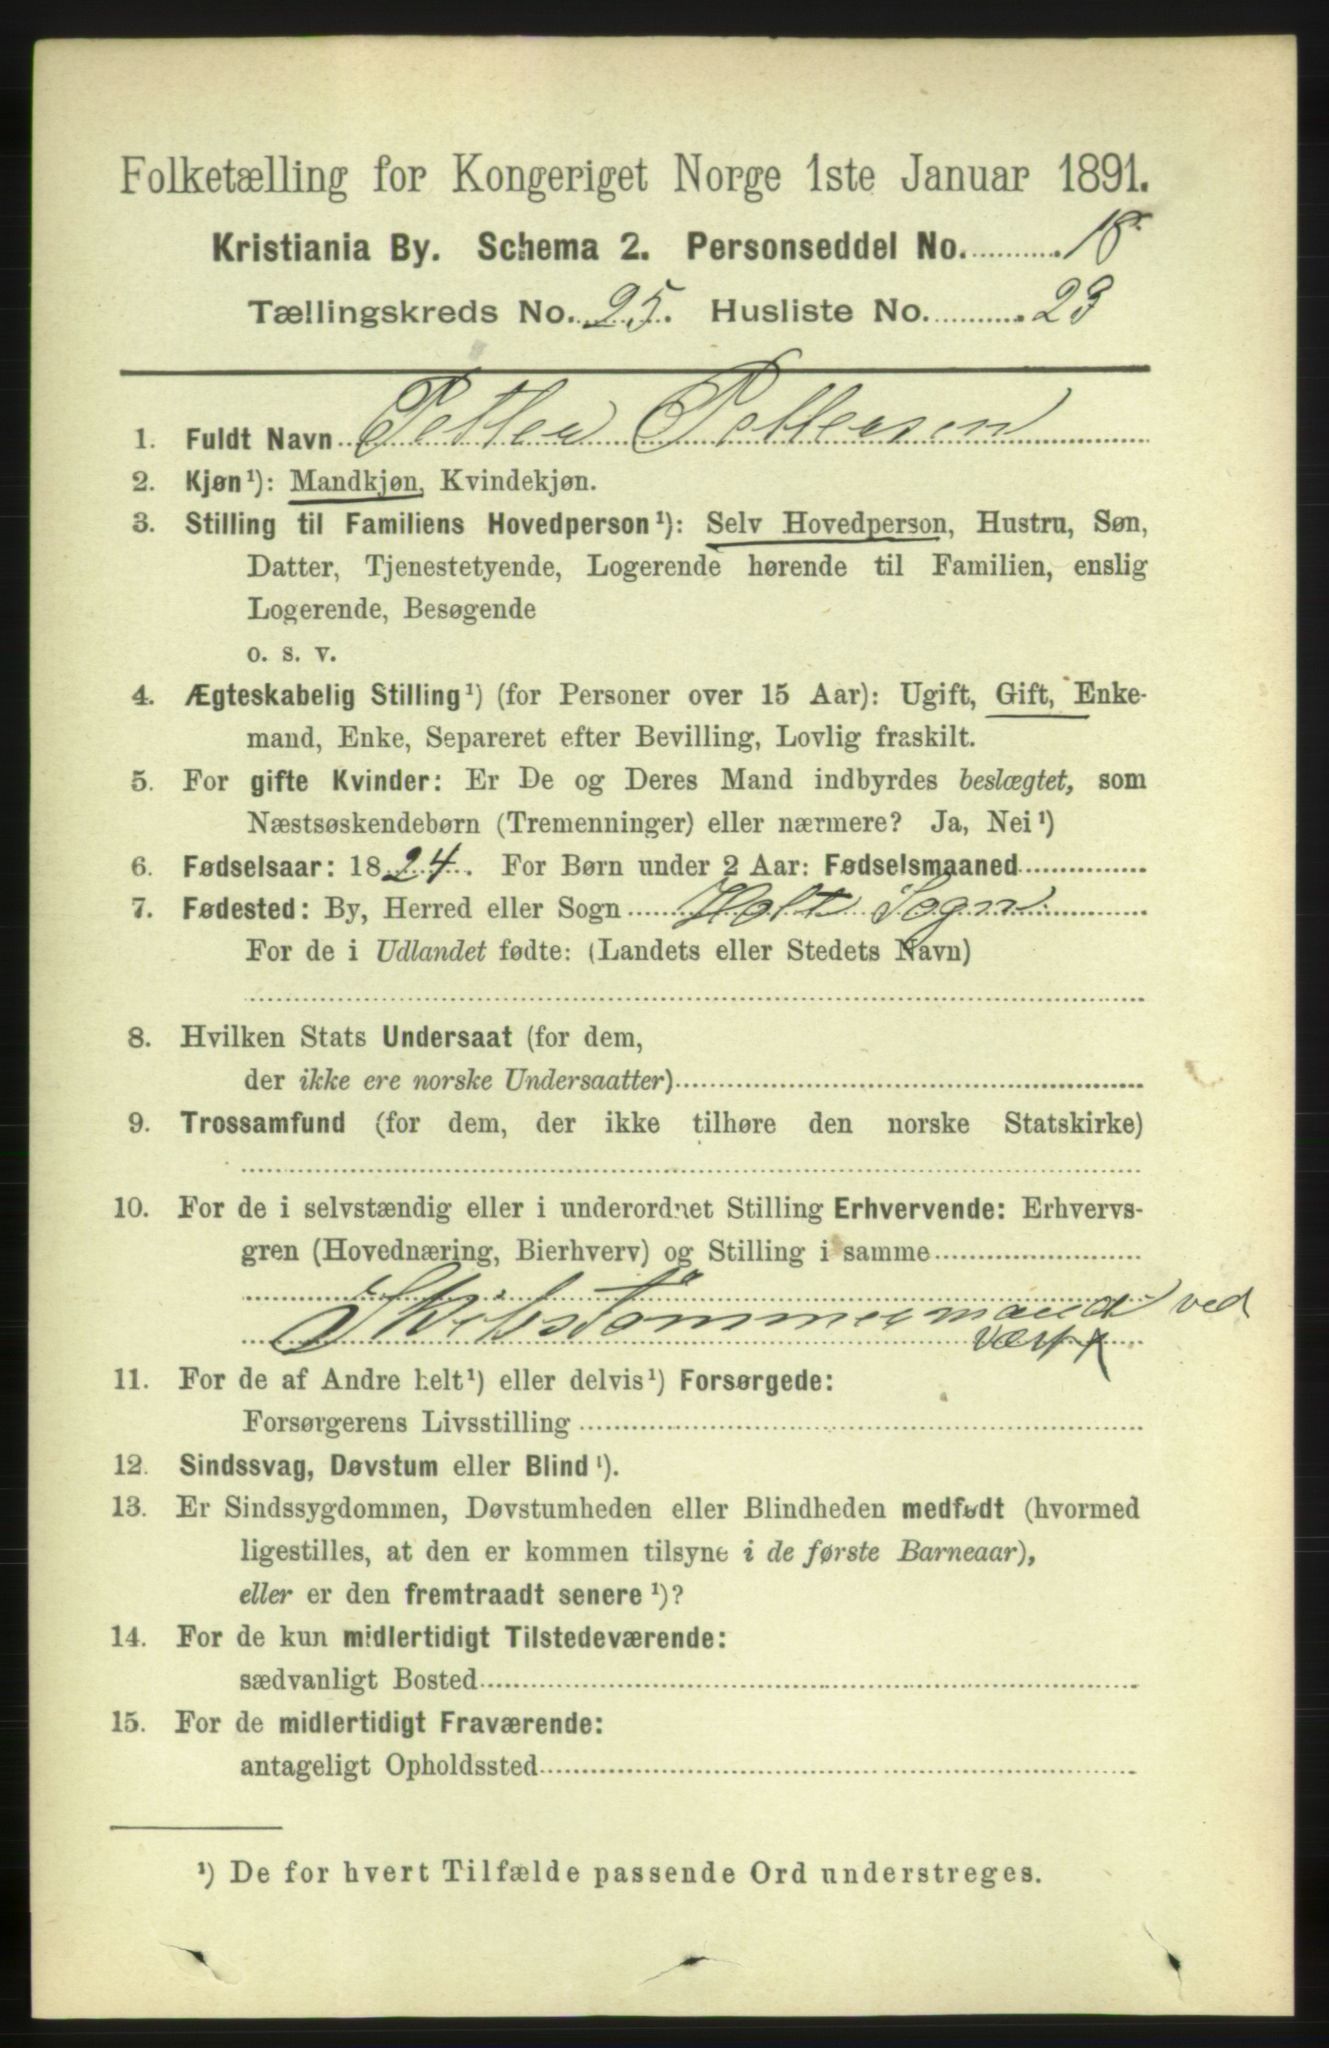 Folketælling for Kongeriget Norge 1ste Januar 1891.
Kristiania By. Schema 2. Personseddel No. 18
Tællingskreds No. 25. Husliste No. 23
1. Fuldt Navn Petter Pettersen
2. Kjøn¹): Mandkjøn, Kvindekjøn.
3. Stilling til Familiens Hovedperson¹): Selv Hovedperson, Hustru, Søn,
Datter, Tjenestetyende, Logerende hørende til Familien, enslig
Logerende, Besøgende
o. s. v.
4. Ægteskabelig Stilling¹) (for Personer over 15 Aar): Ugift, Gift, Enke-
mand, Enke, Separeret efter Bevilling, Lovlig fraskilt.
5. For gifte Kvinder: Er De og Deres Mand indbyrdes beslægtet, som
Næstsøskendebørn (Tremenninger) eller nærmere? Ja, Nei¹)
6. Fødselsaar: 1824. For Børn under 2 Aar: Fødselsmaaned
7. Fødested: By, Herred eller Sogn Holt Sogn
For de i Udlandet fødte: (Landets eller Stedets Navn)
8. Hvilken Stats Undersaat (for dem,
der ikke ere norske Undersaatter)
9. Trossamfund (for dem, der ikke tilhøre den norske Statskirke)
10. For de i selvstændig eller i underordnet Stilling Erhvervende: Erhvervs-
gren (Hovednæring, Bierhverv) og Stilling i samme
Skibstømmermand ved
11. For de af Andre helt¹) eller delvis¹) Forsørgede:
Forsørgerens Livsstilling
12. Sindssvag, Døvstum eller Blind¹).
13. Er Sindssygdommen, Døvstumheden eller Blindheden medfødt (hvormed
ligestilles, at den er kommen tilsyne i de første Barneaar),
eller er den fremtraadt senere¹)?
14. For de kun midlertidigt Tilstedeværende:
sædvanligt Bosted
15. For de midlertidigt Fraværende:
antageligt Opholdssted
¹) De for hvert Tilfælde passende Ord understreges.